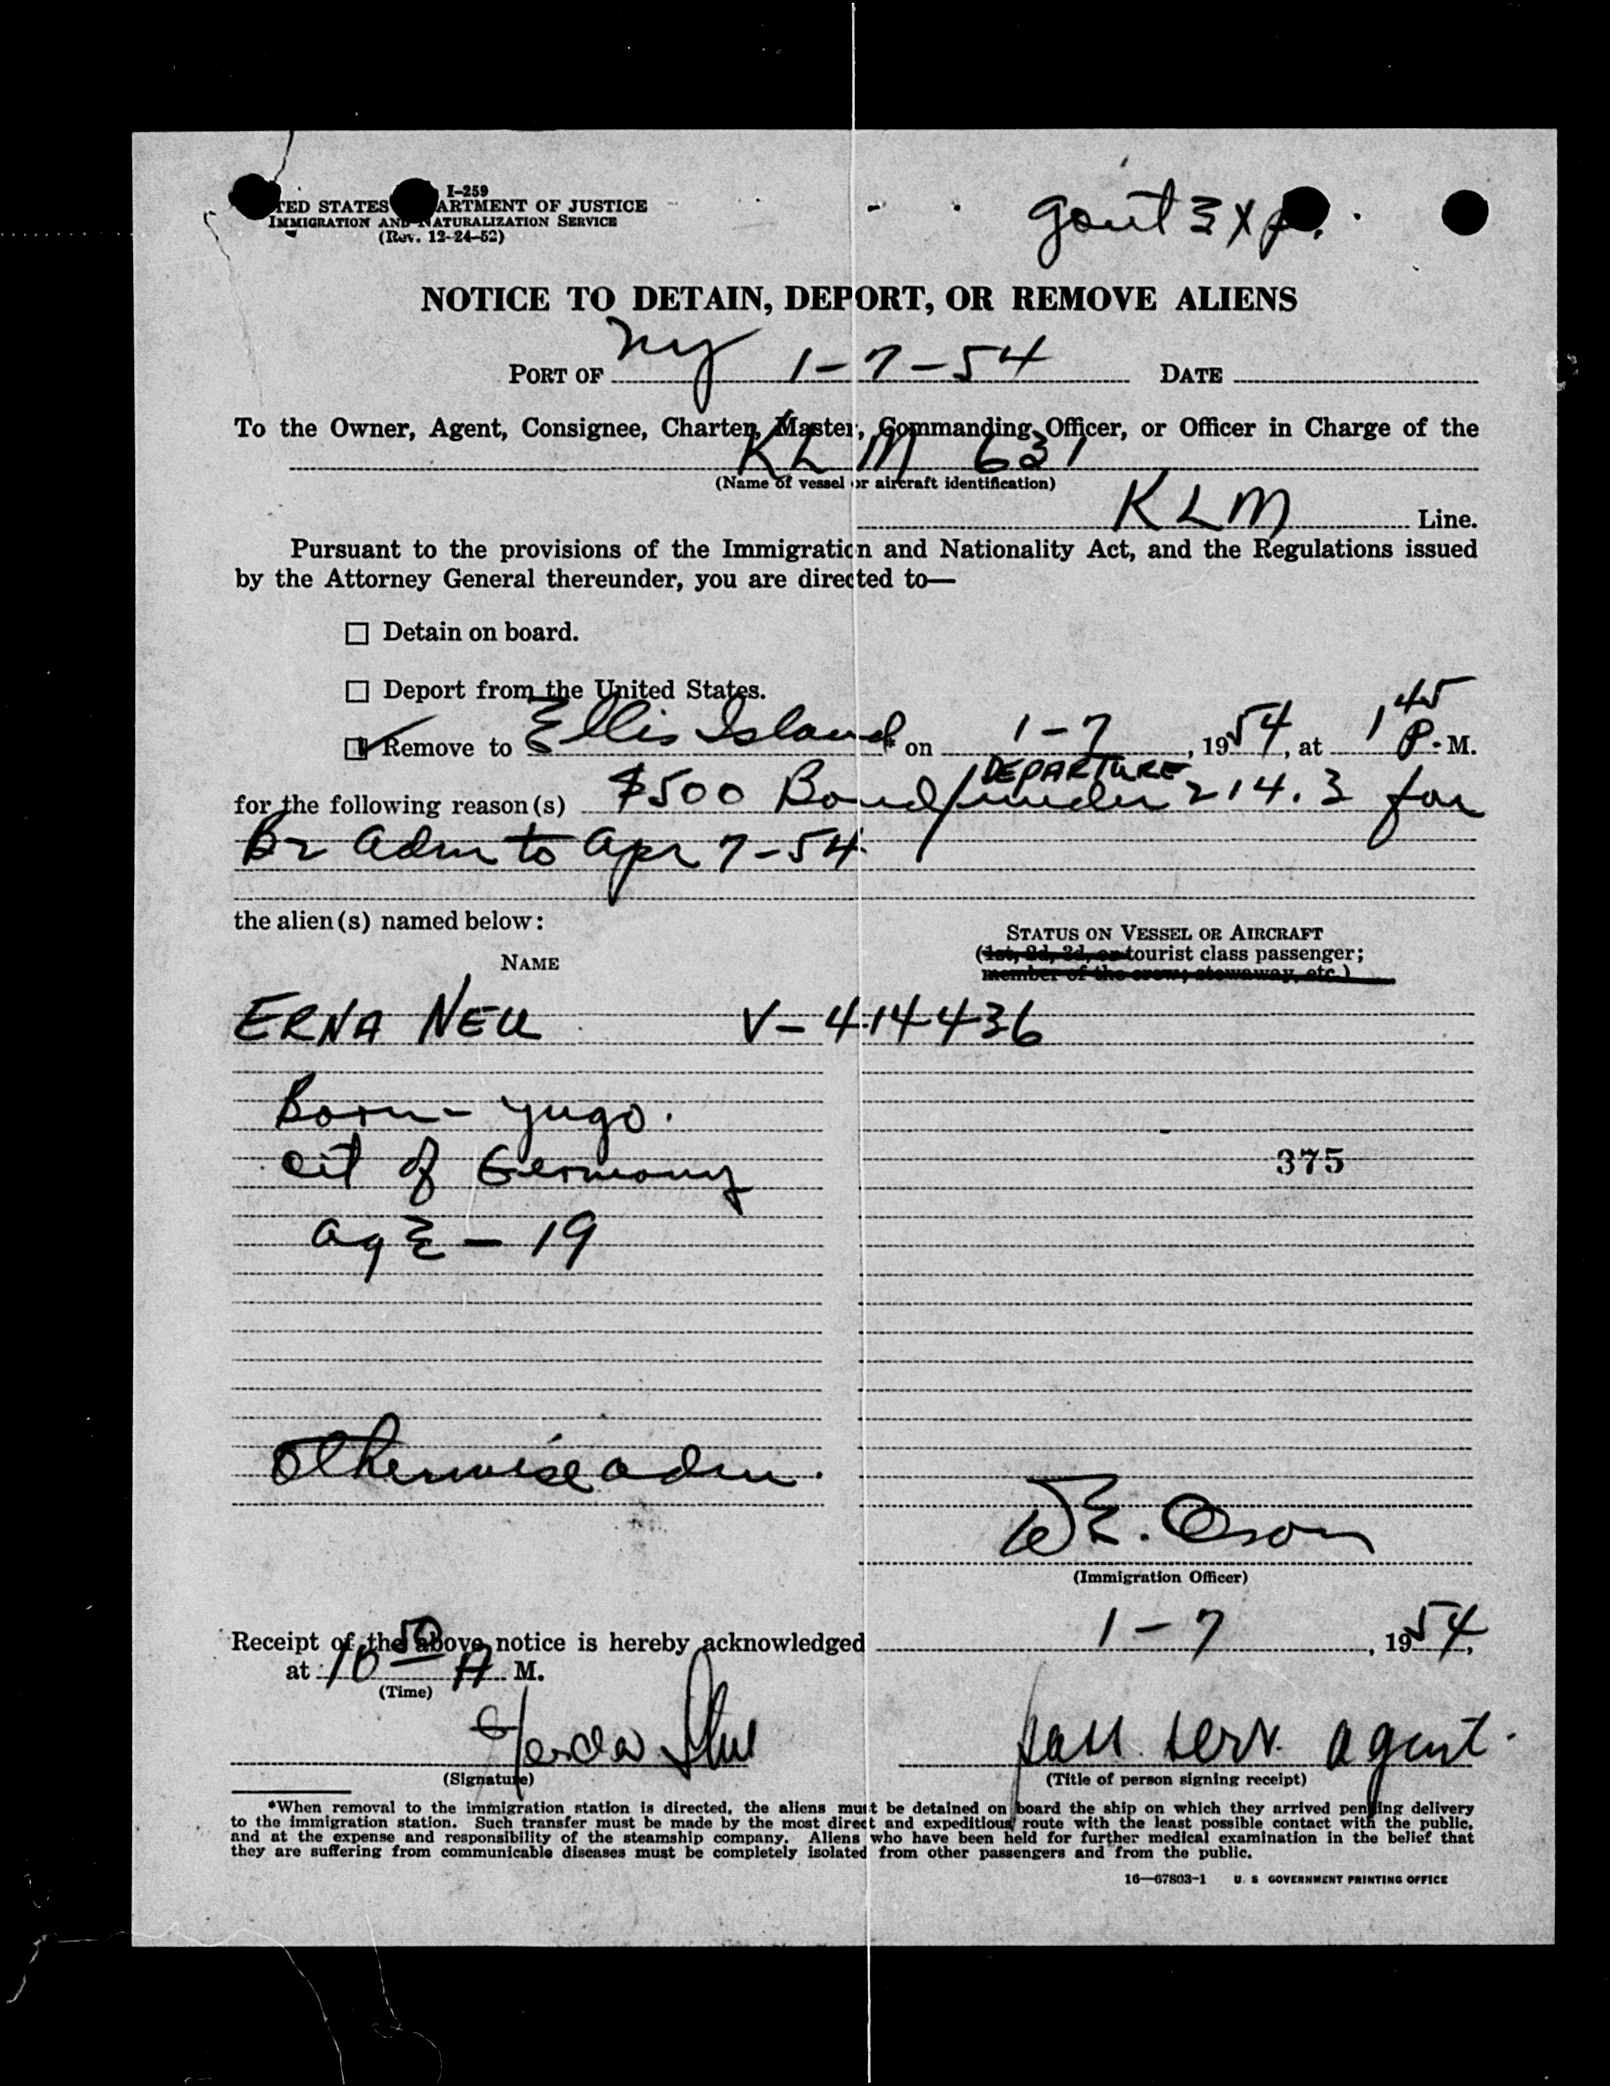 I-259
TED STATES ARTMENT OF JUSTICE
IMMIGRATION AND NATURALIZATION SERVICE
(Rev. 12-24-52)
govt Exp.
NOTICE TO DETAIN, DEPORT, OR REMOVE ALIENS
PORT OF NY 1-7-54 DATE
To the Owner, Agent, Consignee, Charter, Master, Commanding Officer, or Officer in Charge of the
KLM 631
(Name of vessel or aircraft identification)
KLM Line.
Pursuant to the provisions of the Immigration and Nationality Act, and the Regulations issued
by the Attorney General thereunder, you are directed to—
☐ Detain on board.
☐ Deport from the United States.
☑ Remove to Ellis Island* on 1-7, 1954, at 1 45 P. M.
DEPARTURE
for the following reason(s) $500 Bond/under 214.3 for
B2 adm to apr 7-54
the alien(s) named below:
STATUS ON VESSEL OR AIRCRAFT
(1st, 2d, 3d, or tourist class passenger;
NAME
member of the crew; stowaway, etc.)
ERNA NEU V-414436
Born - yugo.
cit of Germany
375
agE - 19
otherwise adm.
W E. Oson
(Immigration Officer)
Receipt of the above notice is hereby acknowledged 1-7, 1954,
at 10 50 A M.
(Time)
Gerda
pass. serv. agent.
(Signature)
(Title of person signing receipt)
*When removal to the immigration station is directed, the aliens must be detained on board the ship on which they arrived pending delivery
to the immigration station. Such transfer must be made by the most direct and expeditious route with the least possible contact with the public,
and at the expense and responsibility of the steamship company. Aliens who have been held for further medical examination in the belief that
they are suffering from communicable diseases must be completely isolated from other passengers and from the public.
16—67803-1 U. S GOVERNMENT PRINTING OFFICE